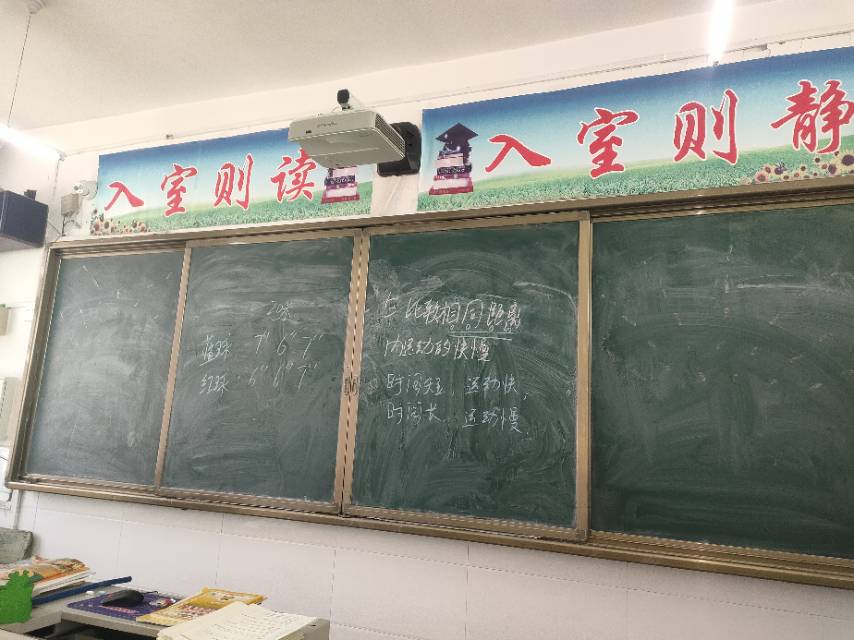 入室则读
入室则静
蓝球 7" 6" 7"
红球 6" 6" 7"
5、比较相同距离
内运动的快慢
时间短，运动快，
时间长，运动慢。